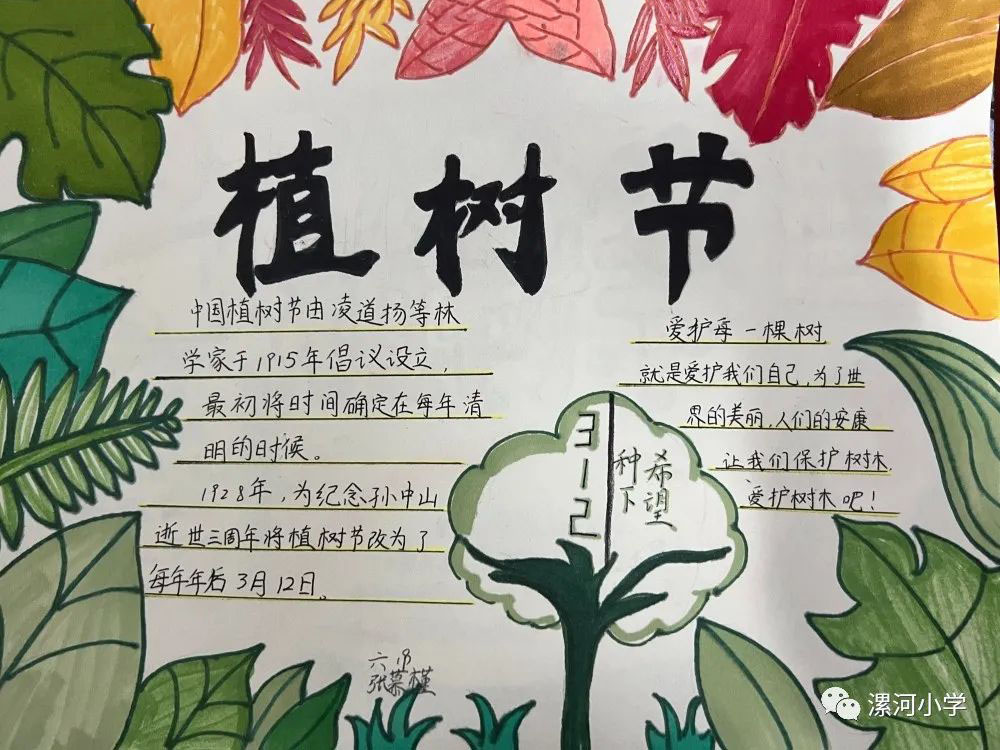 植树节
中国植树节由凌道扬等林
学家于1915年倡议设立，
最初将时间确定在每年清
明的时候。
1928年，为纪念孙中山
逝世三周年将植树节改为了
每年年后3月12日。
爱护每一棵树
就是爱护我们自己，为了世
界的美丽，人们的安康
让我们保护树木
爱护树木吧！
312
种下
希望
张慕槿
漯河小学